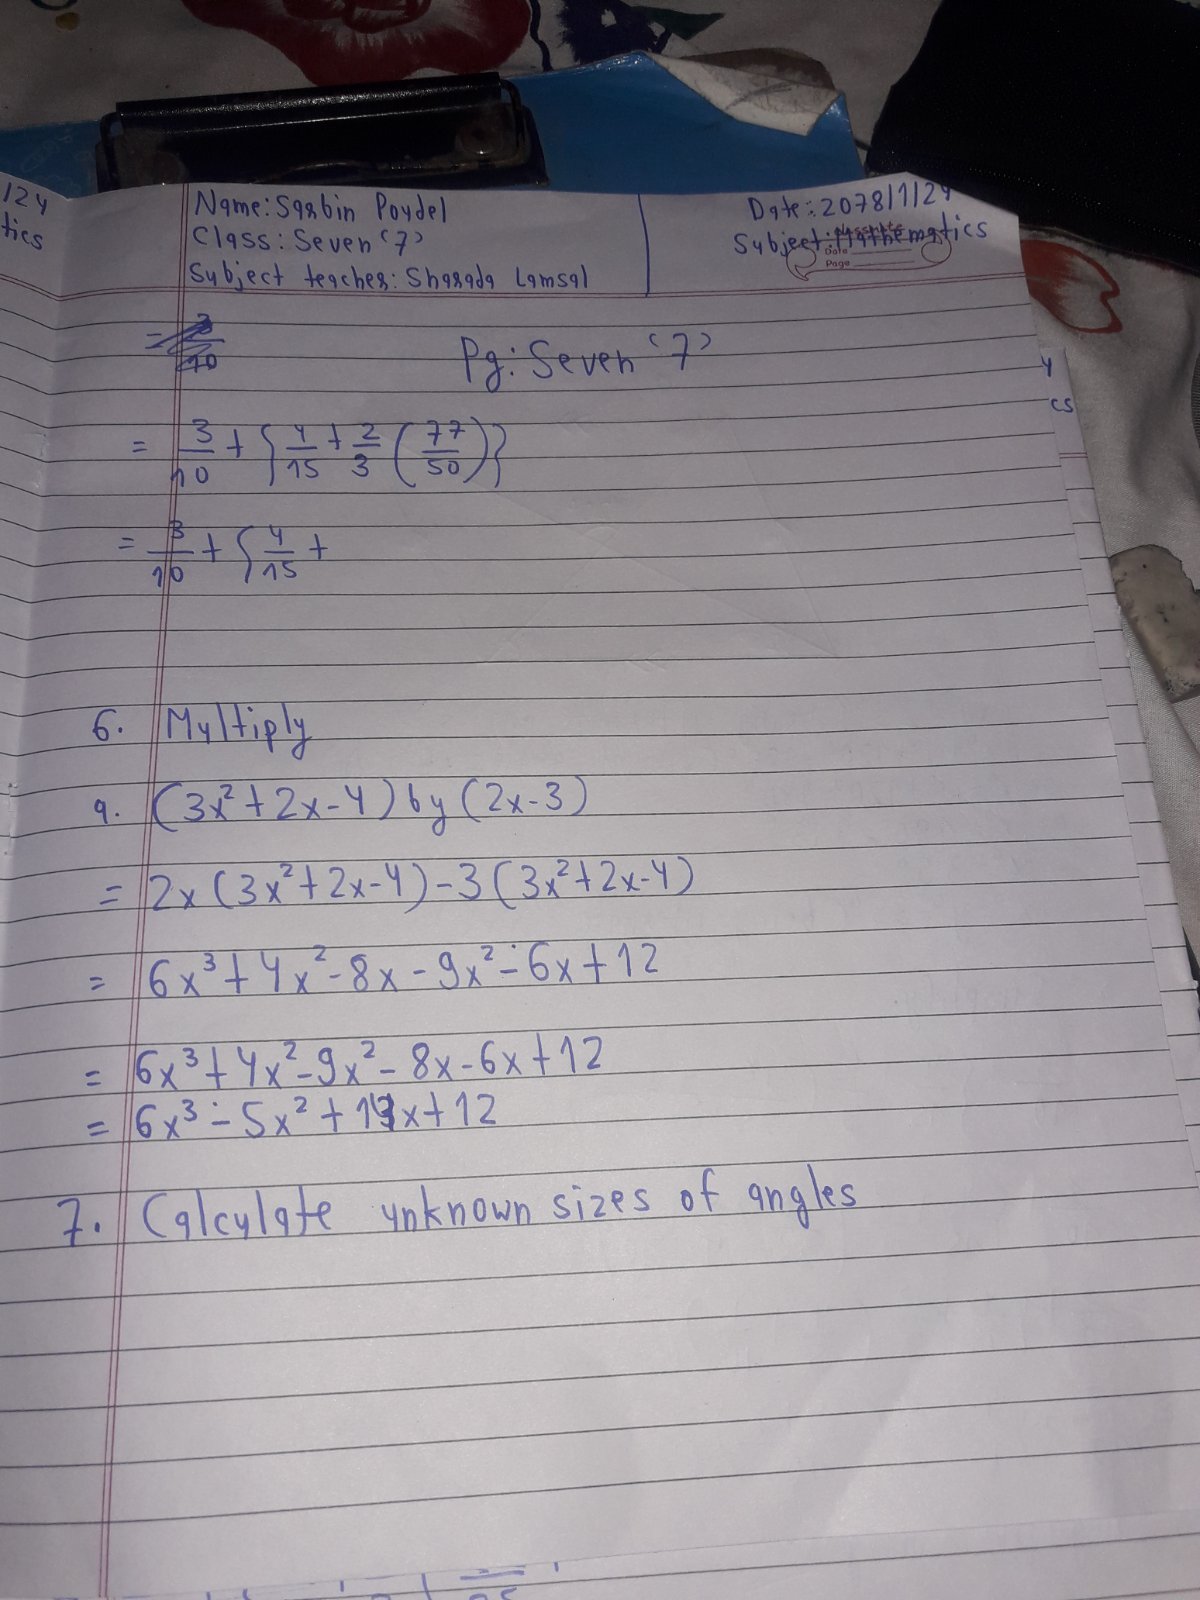 124
tics
Name: Sarbin Poudel
Class: Seven '7'
Subject teacher: Sharada Lamsal
Date: 2078/1/24
Subject: Mathematics
Date
Page
= 3/10
Pg: Seven '7'
= 3/10 + { 4/15 + 2/3 ( 77/50 ) }
= 3/10 + { 4/15 +
4
cs
6. Multiply
a. (3x² + 2x - 4) by (2x - 3)
= 2x (3x² + 2x - 4) - 3 (3x² + 2x - 4)
= 6x³ + 4x² - 8x - 9x² - 6x + 12
= 6x³ + 4x² - 9x² - 8x - 6x + 12
= 6x³ - 5x² + 14x + 12
7. Calculate unknown sizes of angles